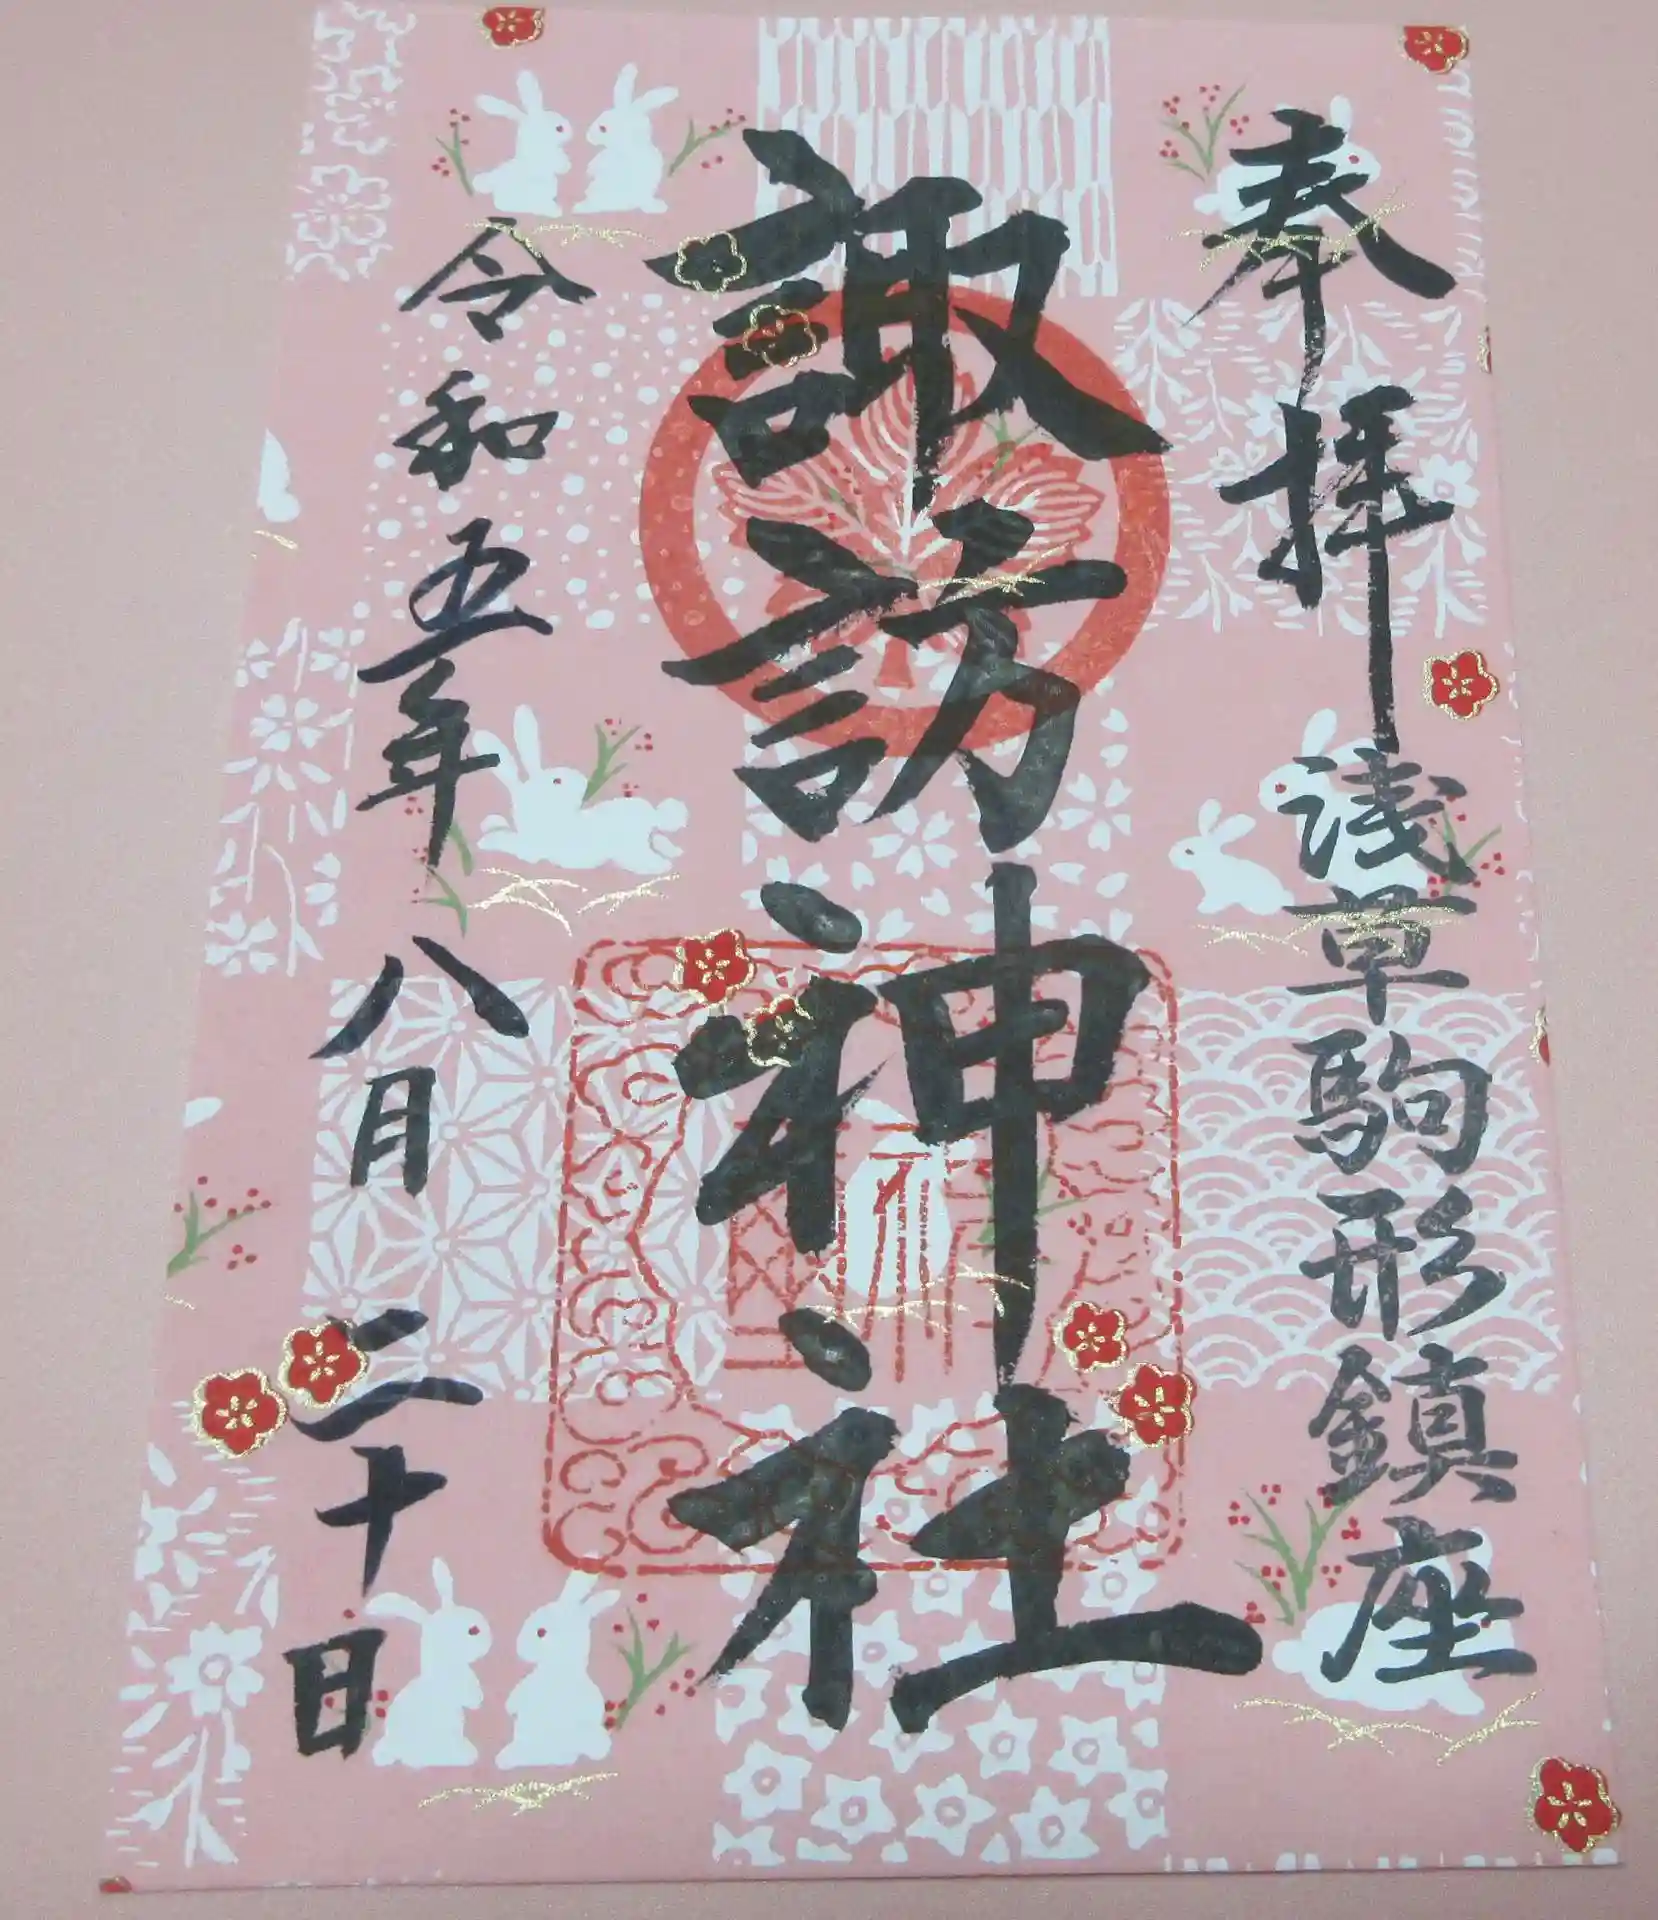 奉拝 浅草駒形鎮座
諏訪神社
令和五年八月二十日